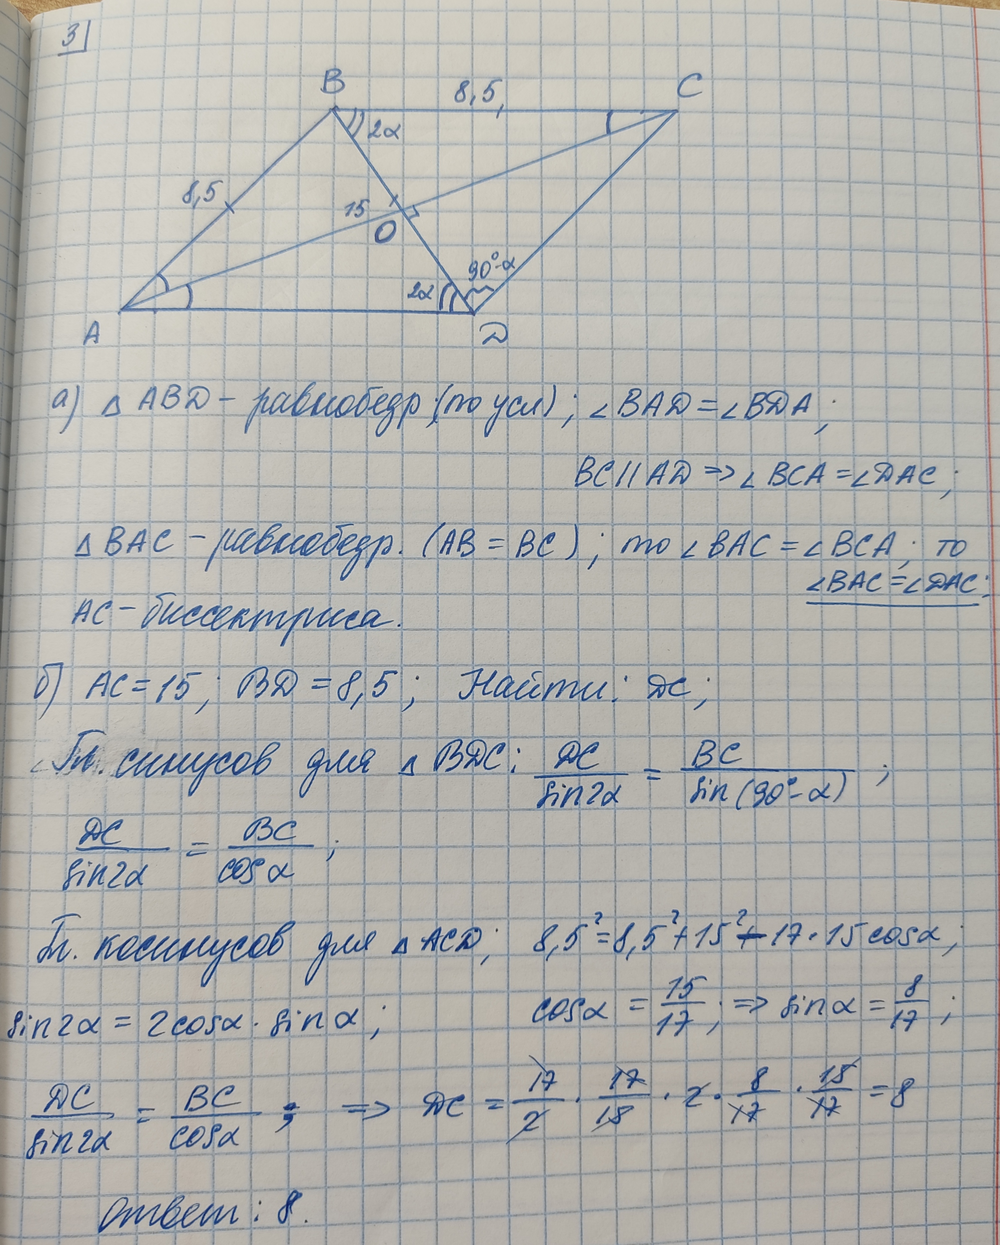 3
B 8,5 C
2α
8,5 15 O
90°-α
2α
A D
а) △ ABD - равнобедр. (по усл) ; ∠BAD = ∠BDA ;
BC || AD => ∠BCA = ∠DAC ;
△ BAC - равнобедр. (AB = BC) ; то ∠BAC = ∠BCA ; то
∠BAC = ∠DAC ;
AC - биссектриса.
б) AC = 15 ; BD = 8,5 ; Найти: DC ;
Т. синусов для △ BDC : DC/sin2α = BC/sin(90°-α) ;
DC/sin2α = BC/cosα ;
Т. косинусов для △ ACD ; 8,5² = 8,5² + 15² - 17·15cosα ;
sin2α = 2cosα · sinα ; cosα = 15/17 ; => sinα = 8/17 ;
DC/sin2α = BC/cosα ; => DC = 17/2 · 17/15 · 2 · 8/17 · 15/17 = 8
Ответ : 8.